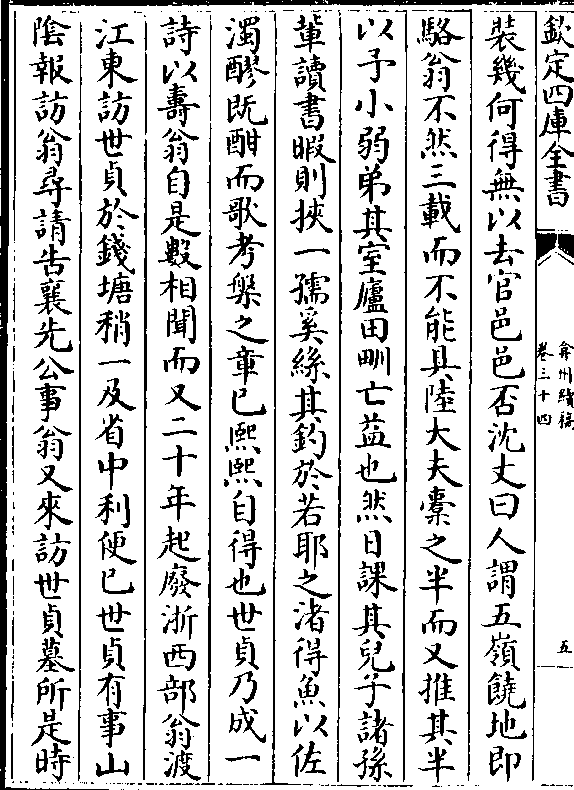 欽定四庫全書
弇州續稿
卷三十四
五
裝幾何得無以去官邑邑否沈丈曰人謂五嶺饒地即
駱翁不然三載而不能具陸大夫橐之半而又推其半
以予小弱弟其室廬田畎亡益也然日課其兒子諸孫
輩讀書暇則挾一孺奚絲其釣於若耶之渚得魚以佐
濁醪既酣而歌考槃之章已熙熙自得也世貞乃成一
詩以壽翁自是數相聞而又二十年起廢浙西部翁渡
江東訪世貞於錢塘稍一及省中利便已世貞有事山
陰報訪翁尋請告襄先公事翁又來訪世貞墓所是時